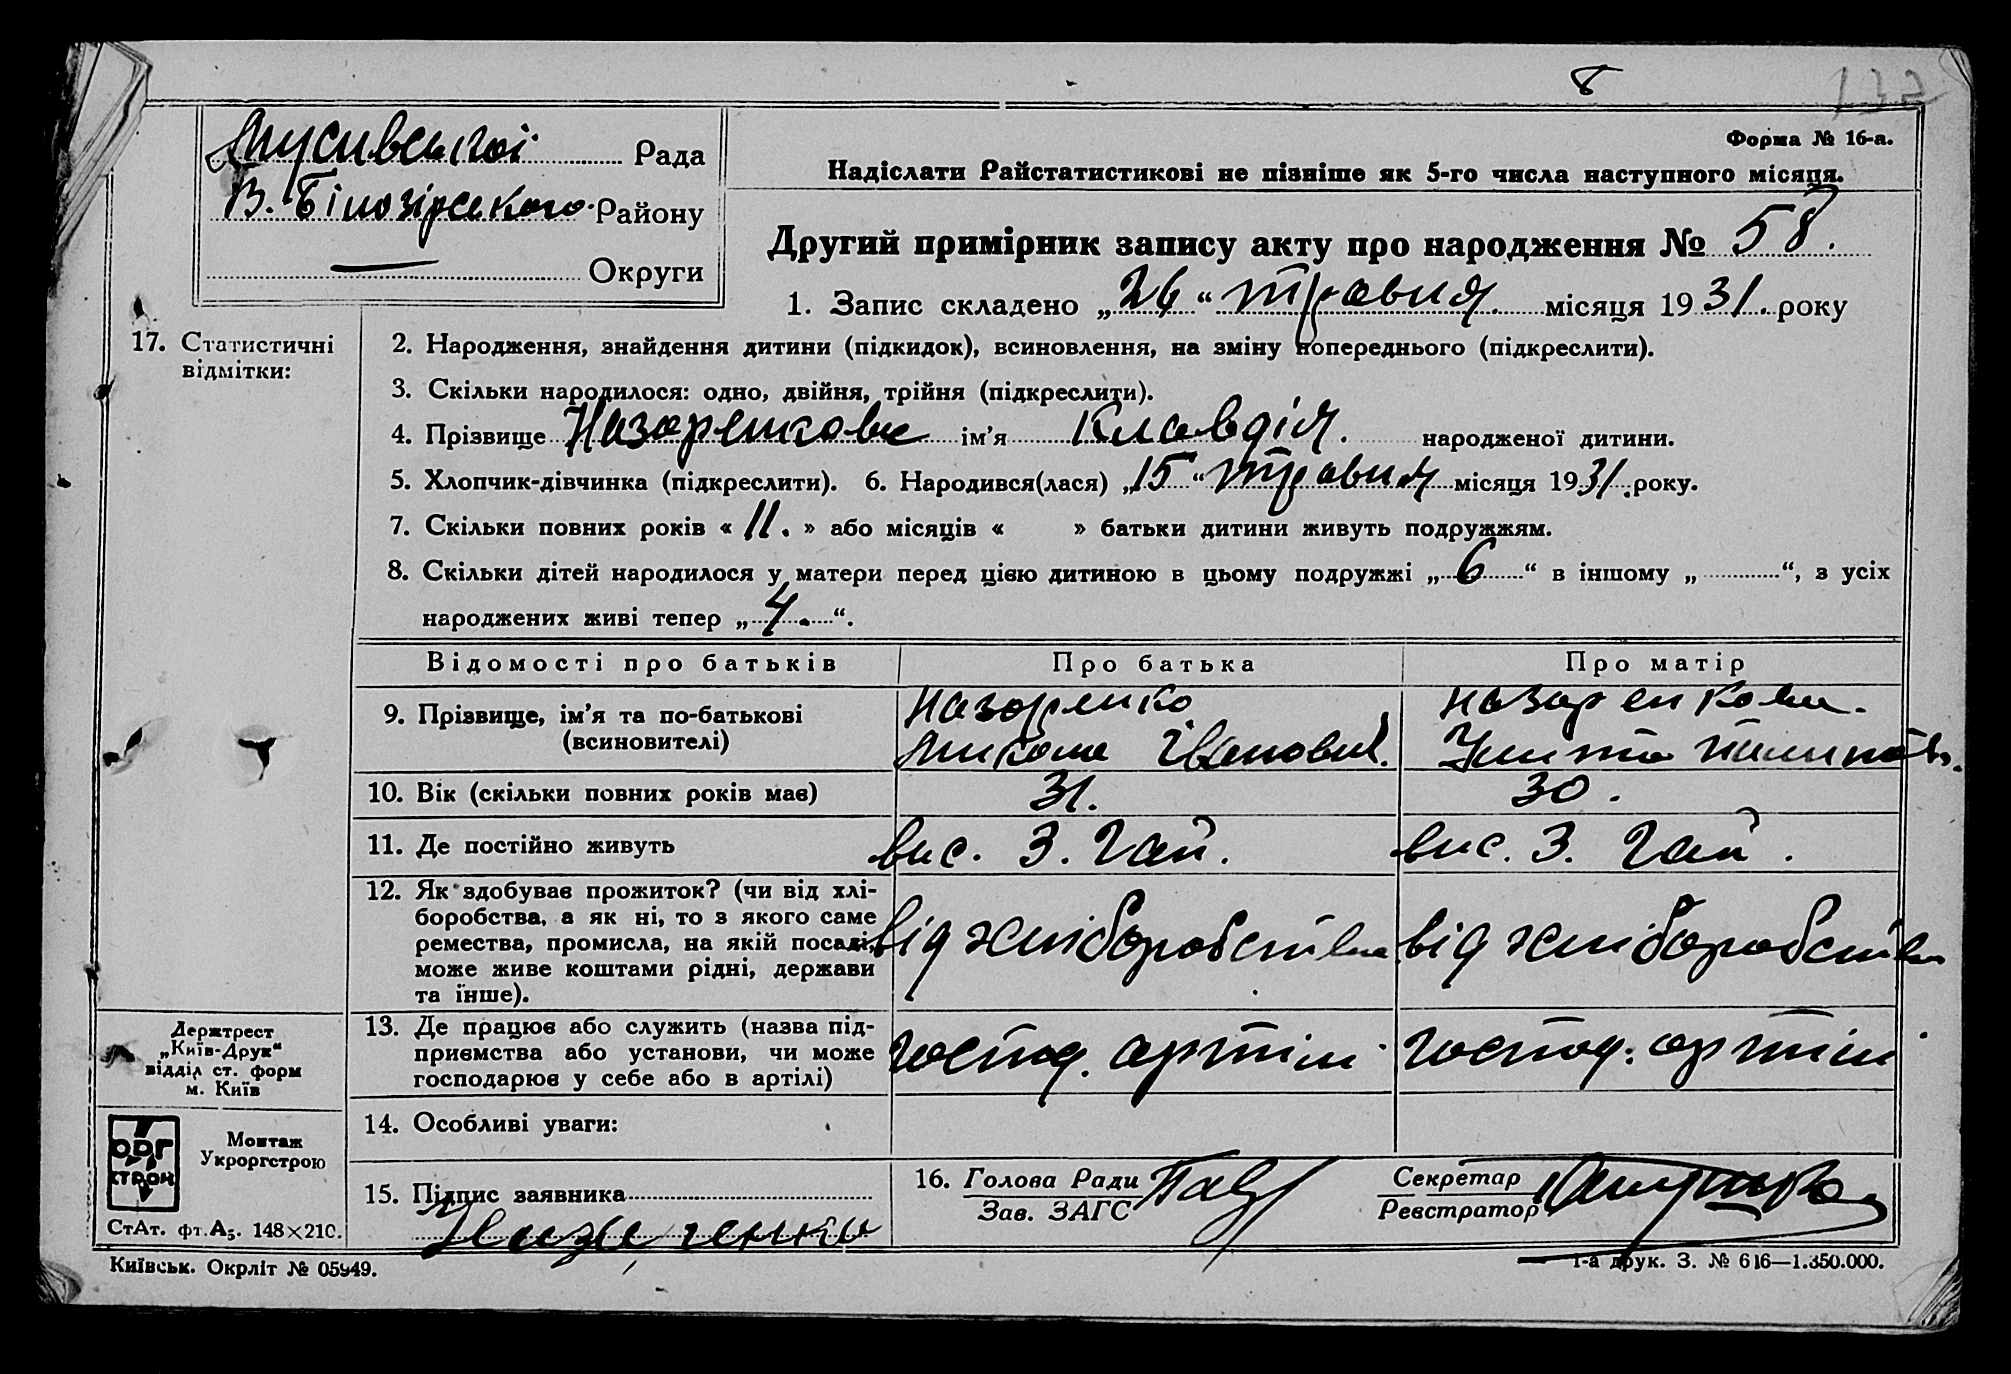 8
132
Форма № 16-а.
Мусиівської Рада
В. Білозірського Району
— Округи
Надіслати Райстатистикові не пізніше як 5-го числа наступного місяця.
Другий примірник запису акту про народження № 58.
1. Запис складено „26“ травня місяця 1931. року
17. Статистичні
відмітки:
2. Народження, знайдення дитини (підкидок), всиновлення, на зміну попереднього (підкреслити).
3. Скільки народилося: одно, двійня, трійня (підкреслити).
4. Прізвище Назаренкова ім’я Клавдія. народженої дитини.
5. Хлопчик-дівчинка (підкреслити). 6. Народився(лася) „15“ травня місяця 1931. року.
7. Скільки повних років « 11. » або місяців « » батьки дитини живуть подружжям.
8. Скільки дітей народилося у матери перед цією дитиною в цьому подружжі „6“ в іншому „ “, з усіх
народжених живі тепер „4.“.
Відомості про батьків Про батька Про матір
9. Прізвище, ім’я та по-батькові
(всиновителі)
Назаренко
Микола Іванович.
Назаренкова.
10. Вік (скільки повних років має) 31. 30.
11. Де постійно живуть вис. З. Гай. вис. З. Гай.
12. Як здобуває прожиток? (чи від хлі-
боробства, а як ні, то з якого саме
ремества, промисла, на якій посаді,
може живе коштами рідні, держави
та інше).
від хліборобства від хліборобства
13. Де працює або служить (назва під-
приємства або установи, чи може
господарює у себе або в артілі)
господ. артіли господ. артіли
14. Особливі уваги:
15. Підпис заявника
16. Голова Ради
Зав. ЗАГС
Секретар
Реєстратор
Держтрест
„Київ-Друк“
відділ ст. форм
м. Київ
ОРГ
СТРОЙ
Монтаж
Укроргстрою
СтАт. фт. А₅. 148×210.
Київськ. Окрліт № 05949.
1-а друк. З. № 616—1.350.000.